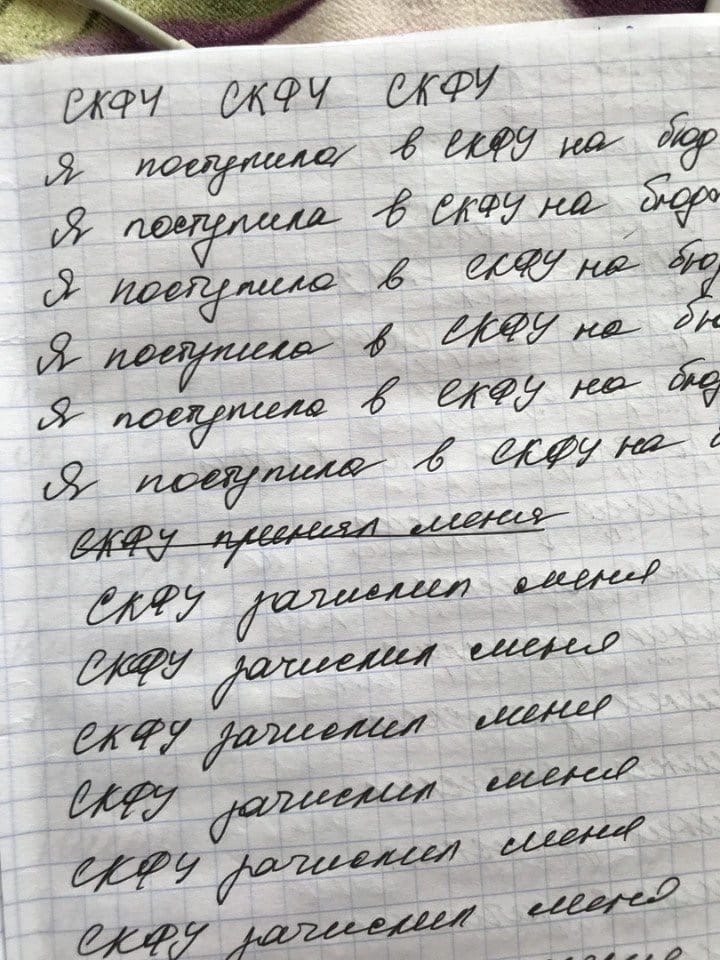 СКФУ СКФУ СКФУ
Я поступила в СКФУ на бюд
Я поступила в СКФУ на бюдж
Я поступила в СКФУ на бюд
Я поступила в СКФУ на бю
Я поступила в СКФУ на бюд
Я поступила в СКФУ на б
СКФУ принял меня
СКФУ зачислил меня
СКФУ зачислил меня
СКФУ зачислил меня
СКФУ зачислил меня
СКФУ зачислил меня
СКФУ зачислил меня